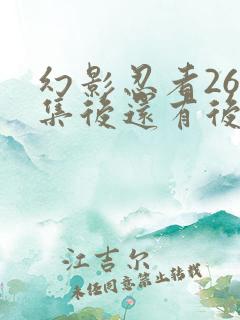 幻影忍者26
集後還有後
江吉尔
未经同意禁止转载